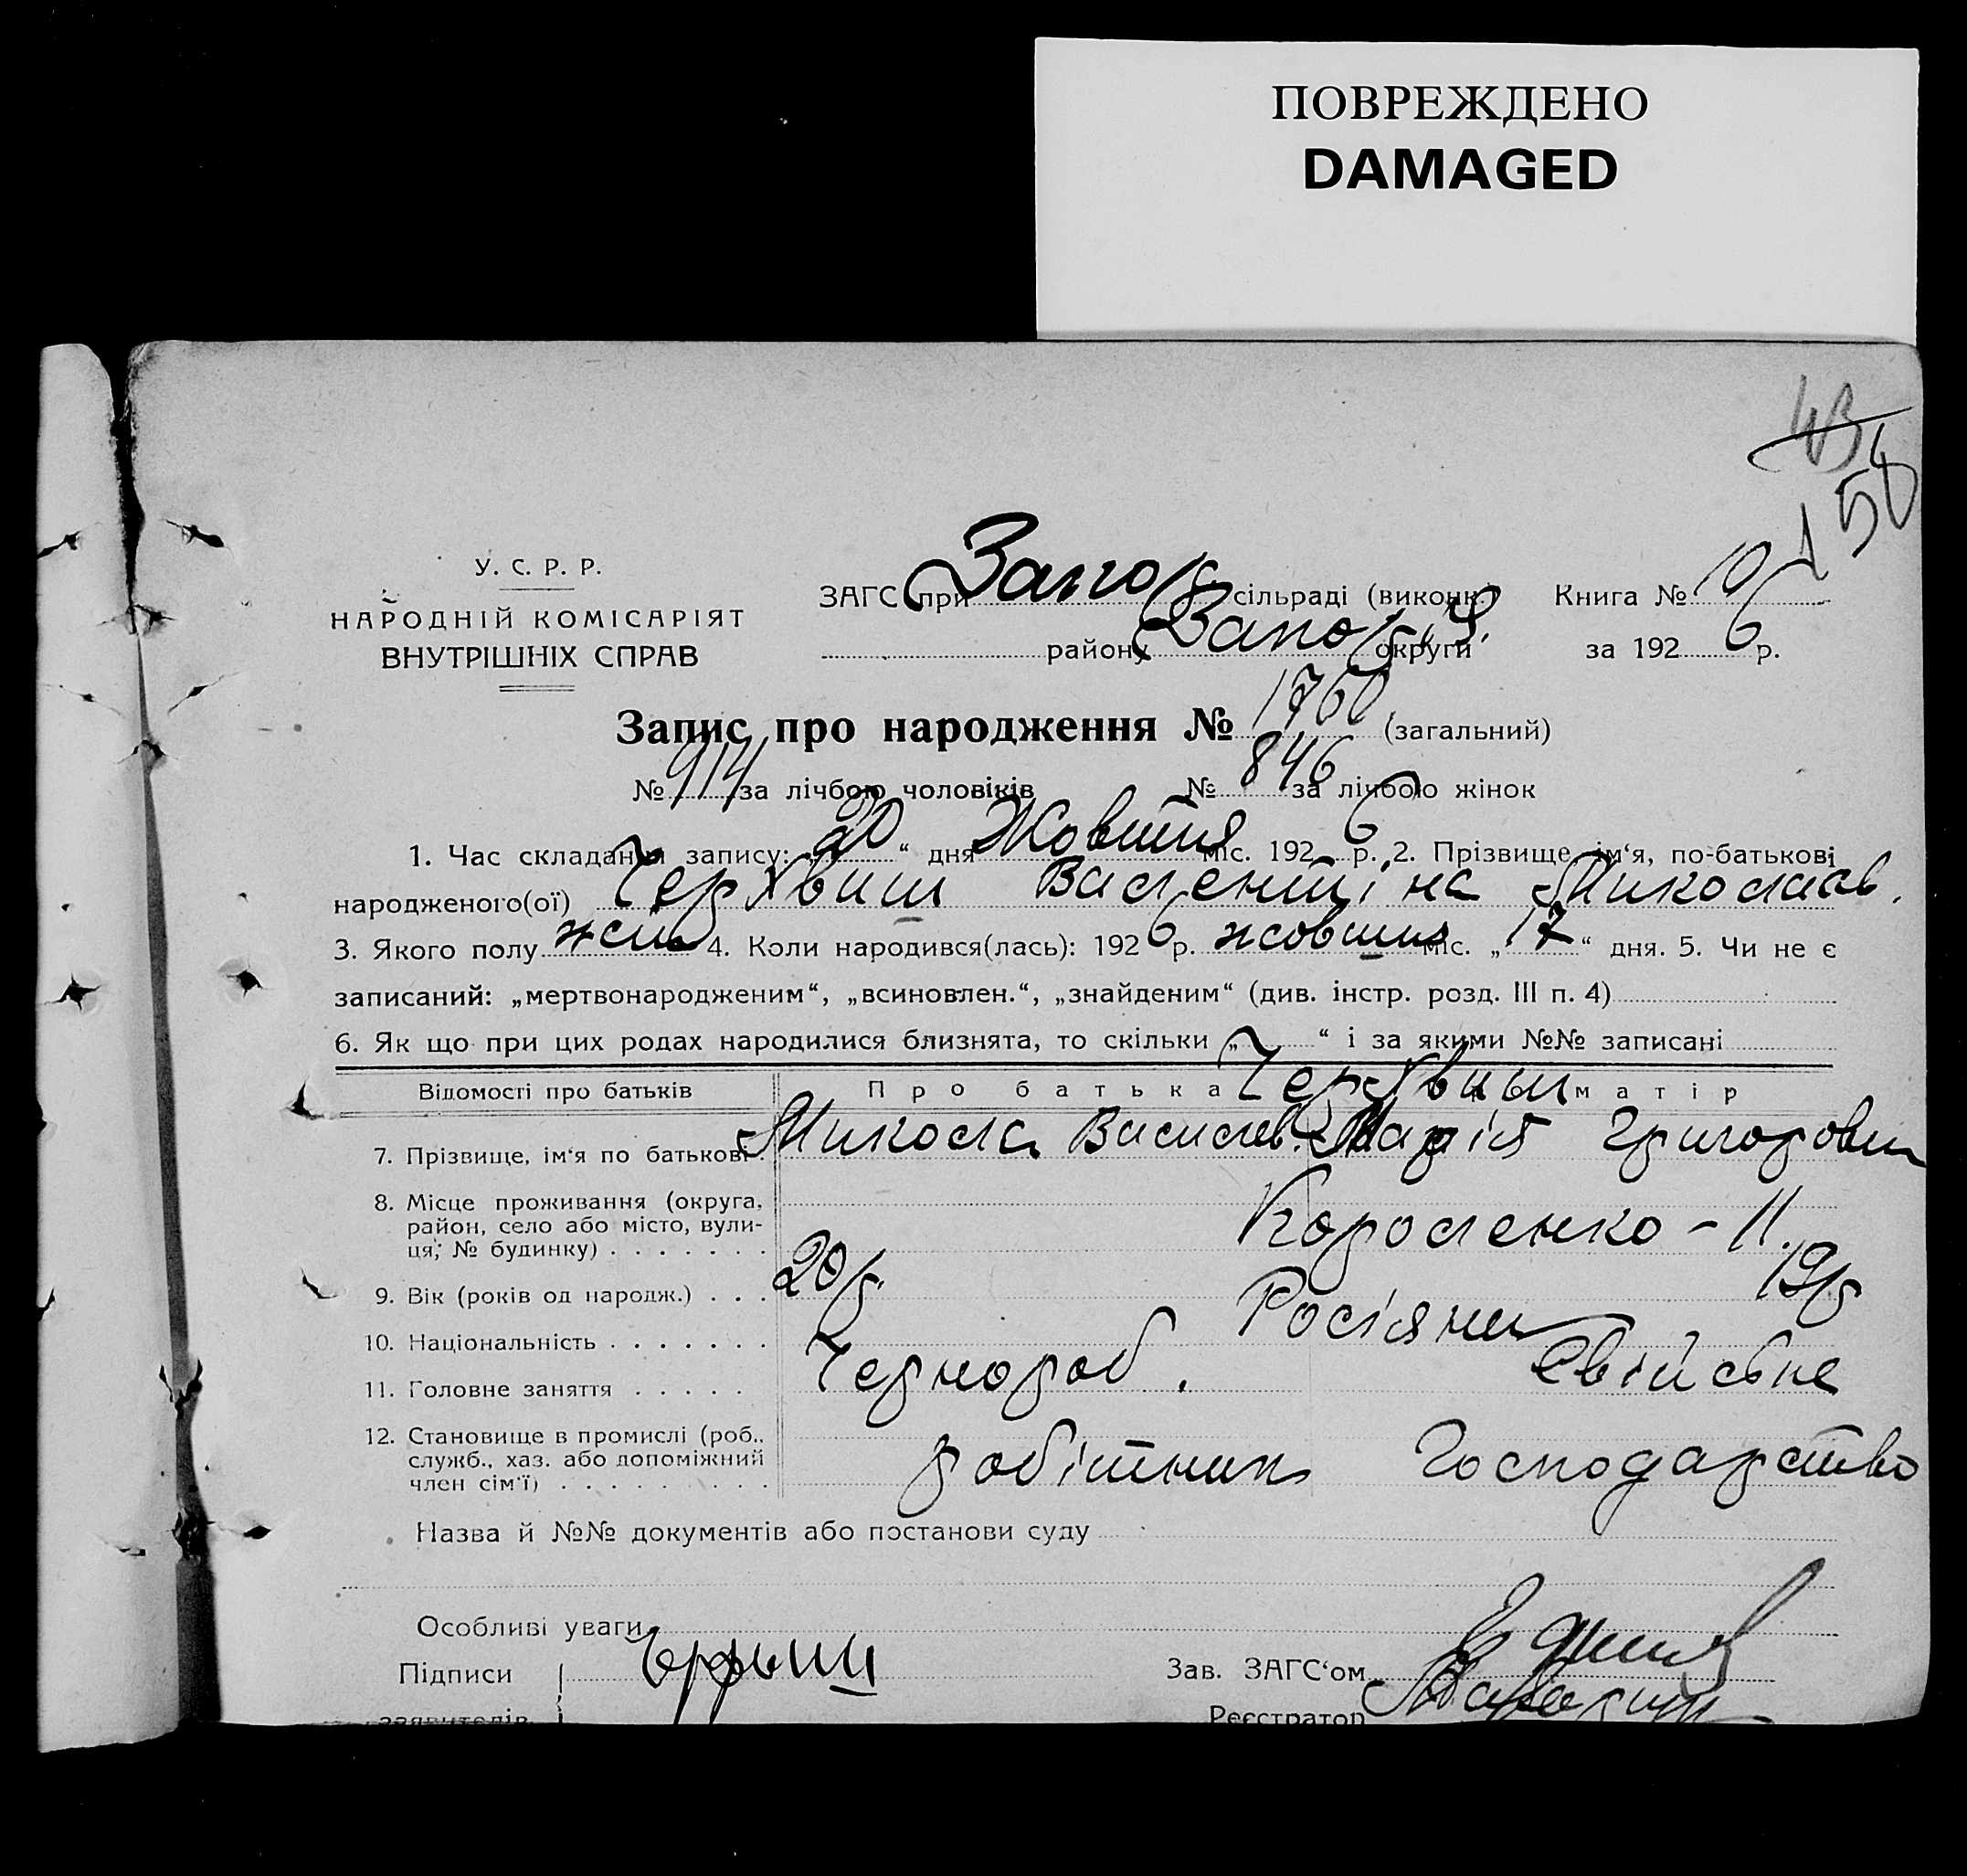 ПОВРЕЖДЕНО
DAMAGED
43
156
У. С. Р. Р.
НАРОДНІЙ КОМІСАРІЯТ
ВНУТРІШНІХ СПРАВ
ЗАГС при Запор сільраді (виконк.) Книга № 10
району Запор округи за 1926 р.
Запис про народження № 1760 (загальний)
№ 914 за лічбою чоловіків № 846 за лічбою жінок
1. Час складання запису: „20“ дня Жовтня міс. 1926 р. 2. Прізвище, ім‘я, по-батькові
народженого(ої) Валентіна Миколаєв.
3. Якого полу жін 4. Коли народився(лась): 1926 р. жовтня міс. „17“ дня. 5. Чи не є
записаний: „мертвонародженим“, „всиновлен.“, „знайденим“ (див. інстр. розд. III п. 4)
6. Як що при цих родах народилися близнята, то скільки „ “ і за якими №№ записані
Відомості про батьків Про батька матір
7. Прізвище, ім‘я по батькові Микола Василев. Марія Григоровн
8. Місце проживання (округа,
район, село або місто, вули-
ця; № будинку) . . . . . . . Короленко - 11.
9. Вік (років од народж.) . . . 20 р. 19 р
10. Національність . . . . . . . Росіяни
11. Головне заняття . . . . . Чернороб. Свійське
12. Становище в промислі (роб.,
служб., хаз. або допоміжний
член сім‘ї) . . . . . . . . . робітник Господарство
Назва й №№ документів або постанови суду
Особливі уваги
Підписи Зав. ЗАГС‘ом
заявителів Реєстратор